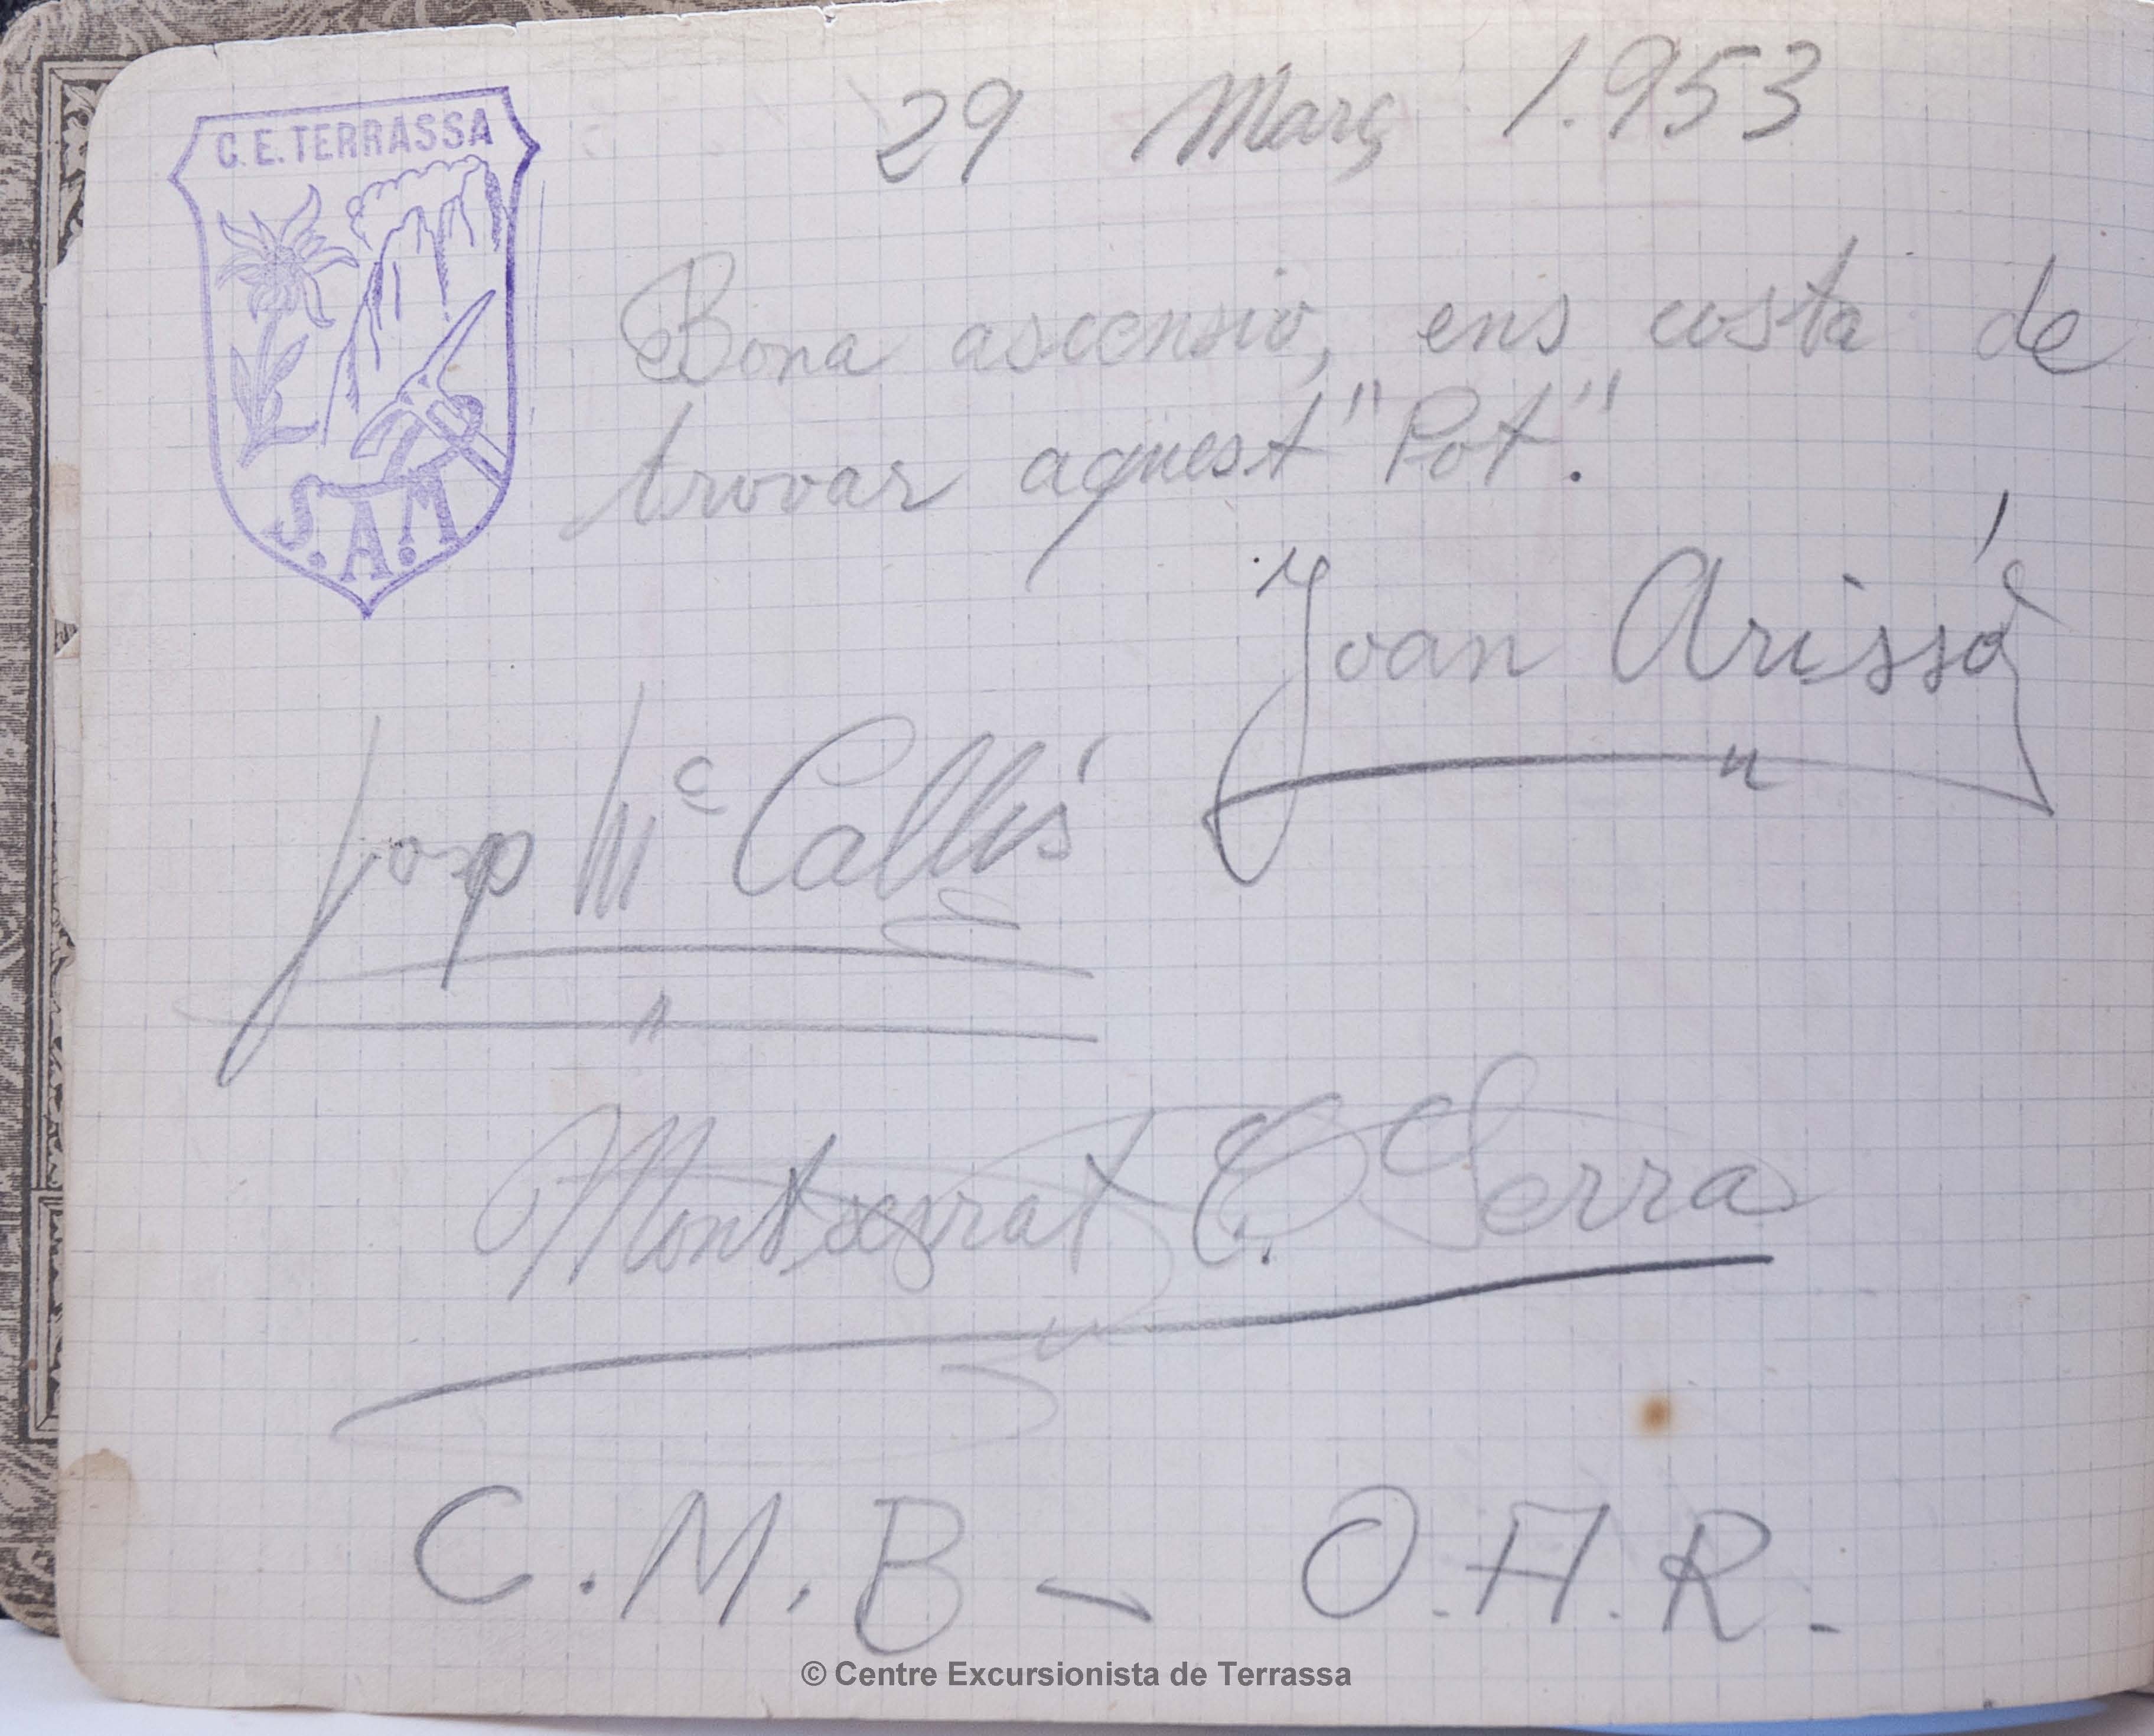 C.E.TERRASSA
S.A.M
29 Març 1.953
Bona ascensio, ens costa de
trovar aquest "Pot".
Joan Arissó
Josep Mª Callís
Montserrat C. Serra
C.M.B - O.A.R.
© Centre Excursionista de Terrassa